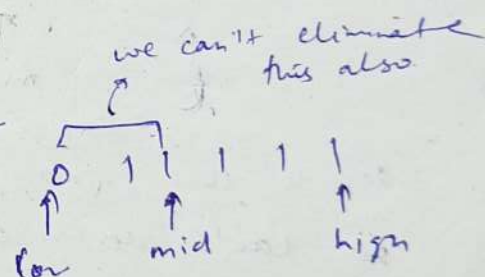 we can't eliminate
this also
0 1 1 1 1 1
low mid high